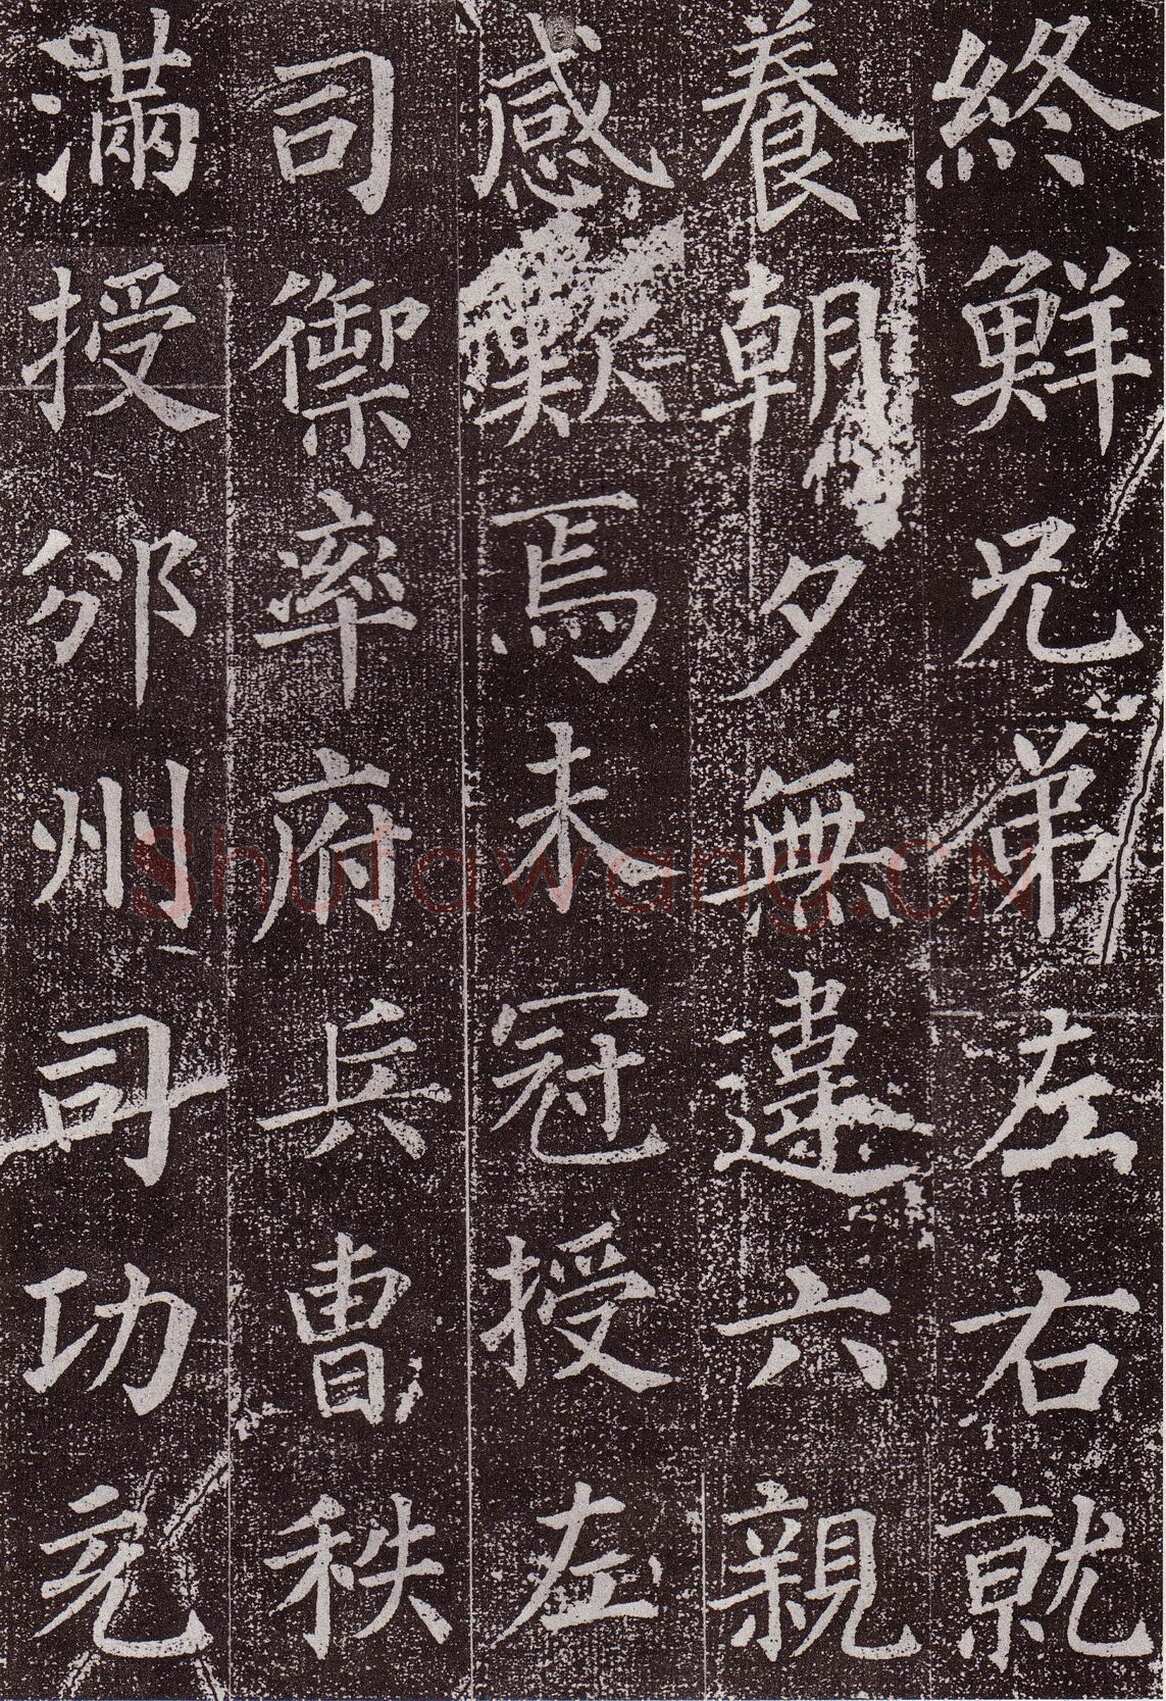 終鮮兄弟左右就
養朝夕無違六親
感歎焉未冠授左
司禦率府兵曹秩
滿授邠州司功充
Shufawang.CN